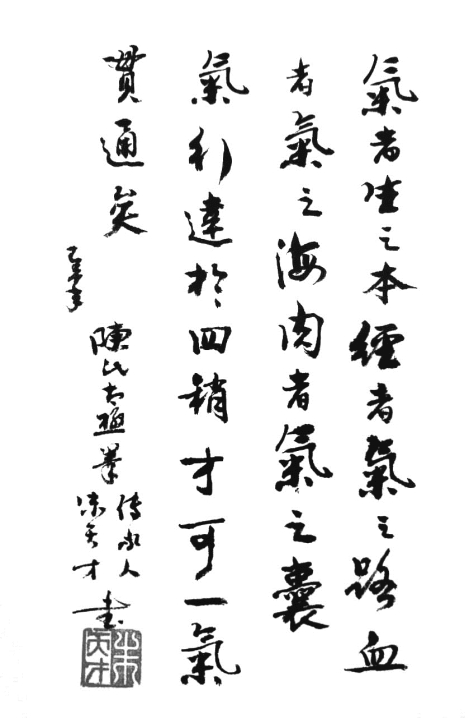 氣者生之本經者氣之路血
者氣之海肉者氣之囊
氣行達於四稍才可一氣
貫通矣
陳氏太極拳
傳人
朱天才書
朱天才